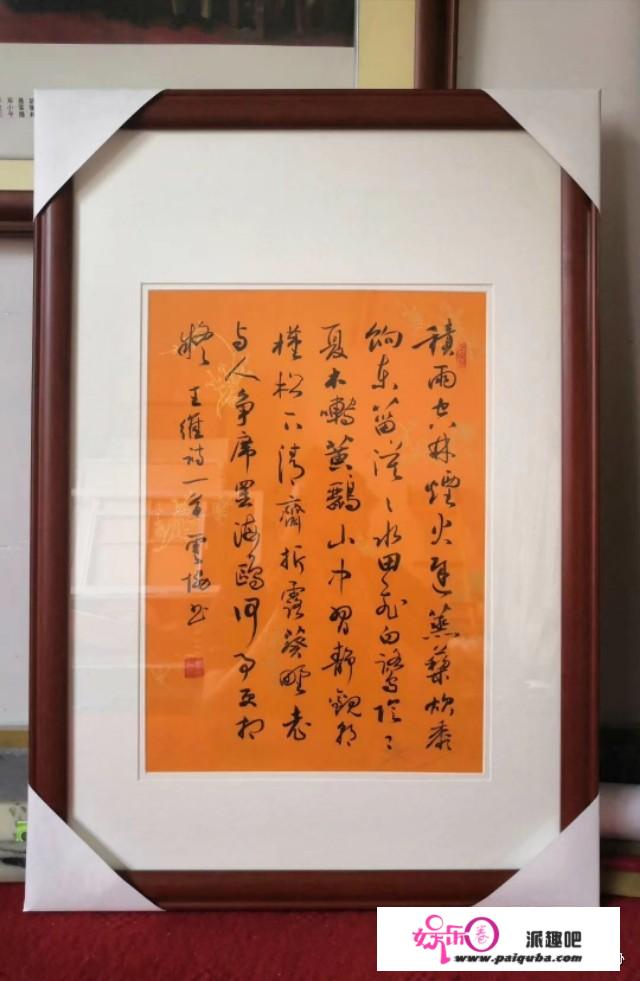 積雨空林煙火遲蒸藜炊黍
餉東菑漠〻水田飛白鷺陰〻
夏木囀黃鸝山中習靜觀朝
槿松下清齋折露葵野老
与人争席罷海鷗何事更相
疑 王維詩一首雲书
娱乐圈
派趣吧
www.paiquba.com